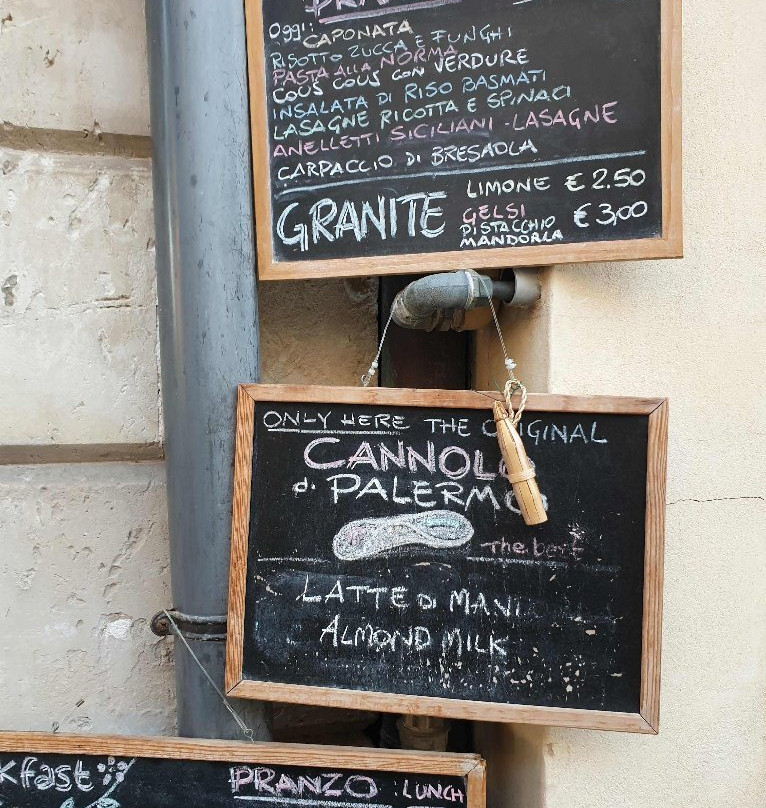 Oggi:
CAPONATA
RISOTTO ZUCCA E FUNGHI
PASTA alla NORMA
COUS COUS con VERDURE
INSALATA DI RISO BASMATI
LASAGNE RICOTTA E SPINACI
ANELLETTI SICILIANI - LASAGNE
CARPACCIO DI BRESAOLA
GRANITE
LIMONE € 2.50
GELSI
PISTACCHIO € 3,00
MANDORLA
ONLY HERE THE ORIGINAL
CANNOLO
di PALERMO
the best
LATTE DI
ALMOND MILK
PRANZO : LUNCH